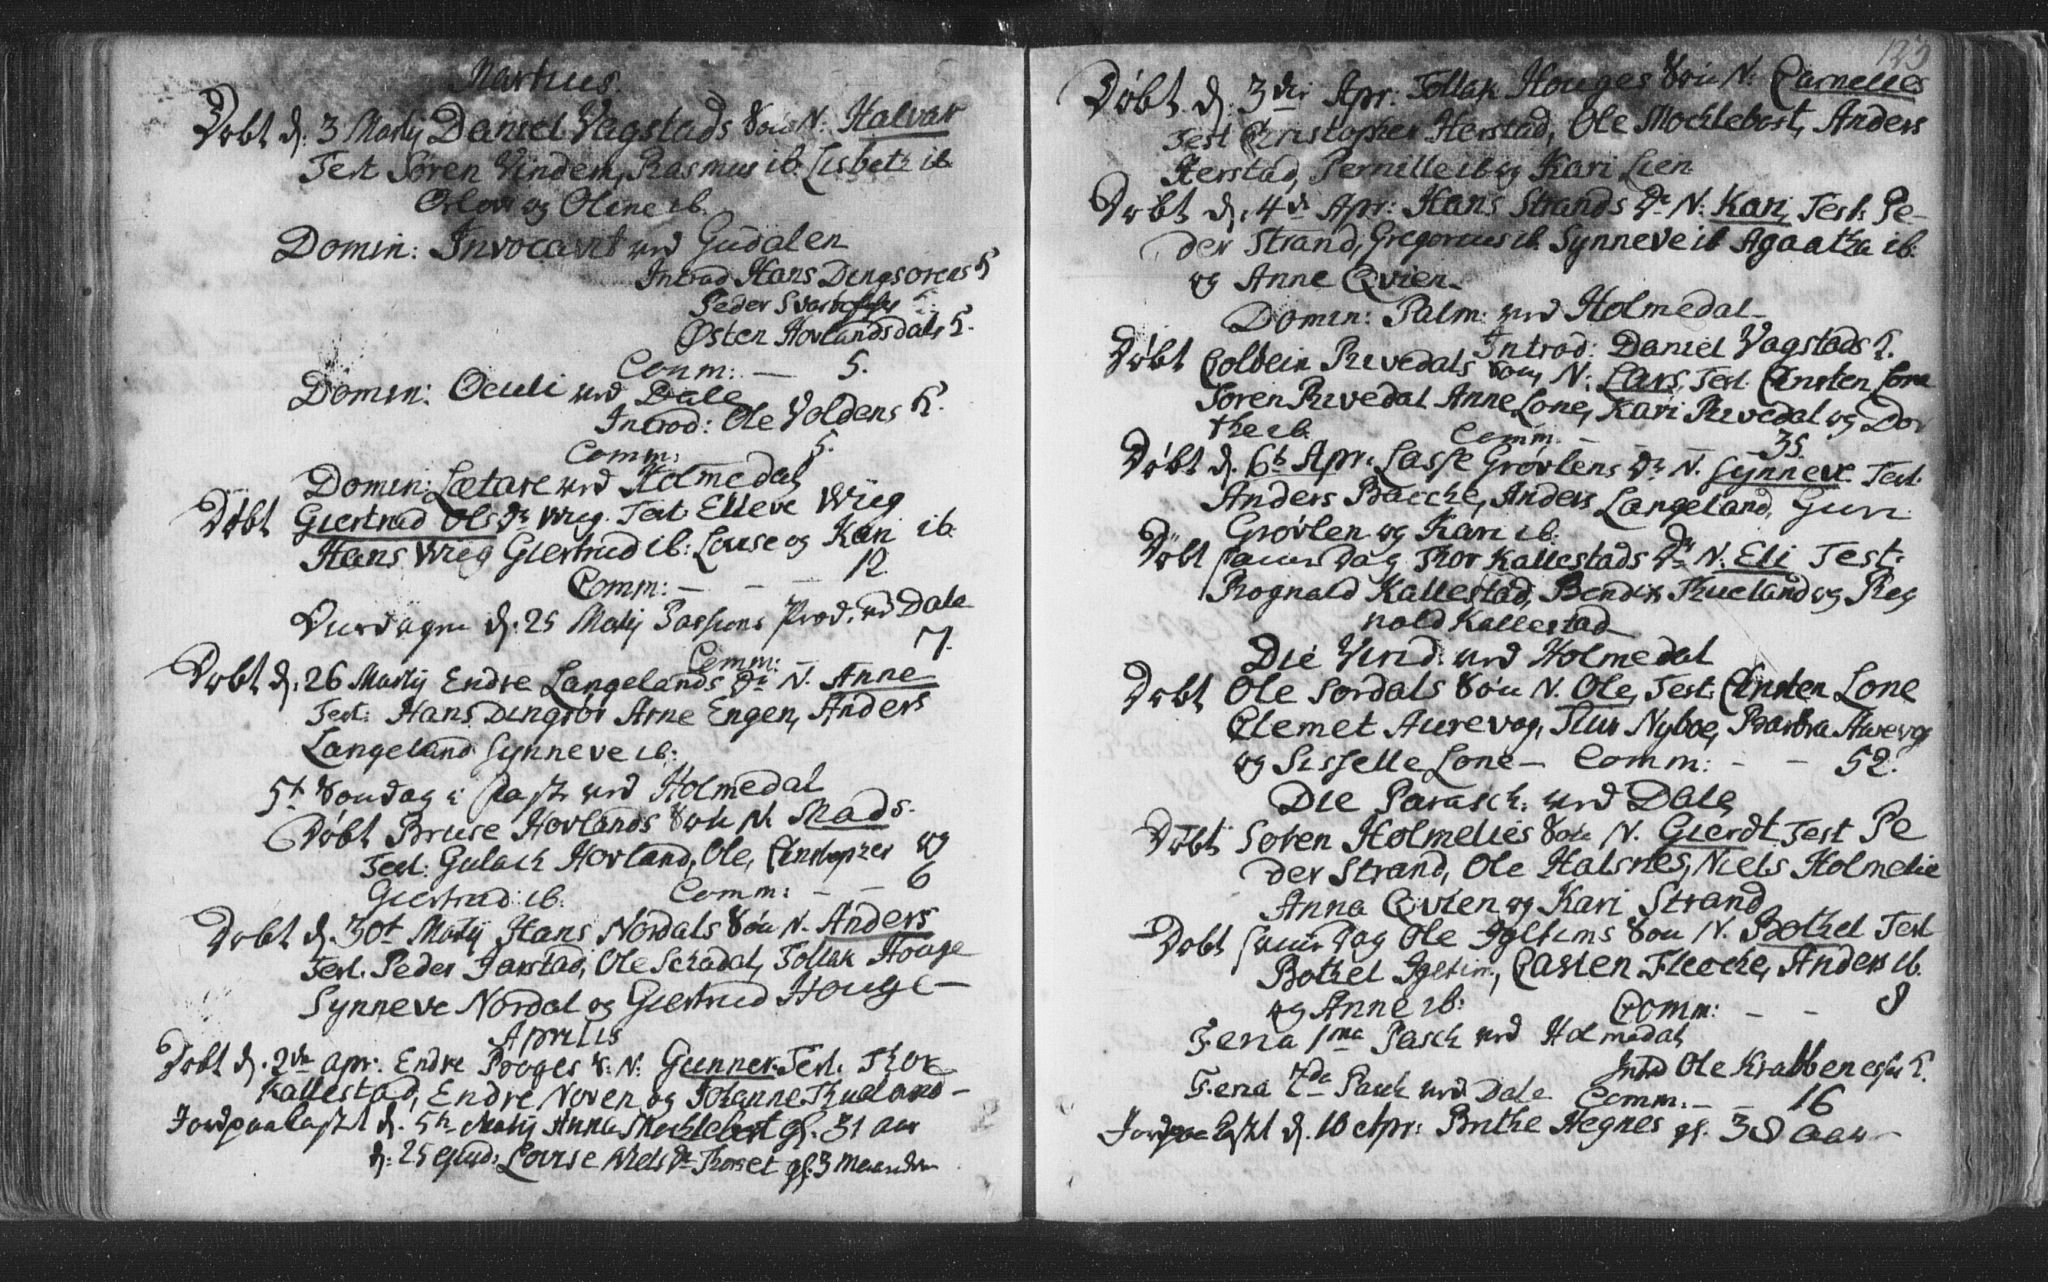 Martius.
Døbt d. 3 Martij Daniel Vagstads Søn N. Halvar
Test Søren Vindem, Rasmus ib. Lisbeth ib
og Oline ib.
Domin: Invocavit ved Gudalen
Introd Hans Dingsørens K
Peder
Østen Hovlandsdals K.
Comm: — 5.
Domin: Oculi ved Dale
Introd: Ole Voldens K.
Comm: 5.
Domin: Lætare ved Holmedal
Døbt Giertrud Ols Dr Wrig. Test Elleve Wrig
Hans Wrig Giertrud ib: Louse og Kari ib.
Comm: — — — 12
d. 25 Martij Passions Præd. ved Dale
Comm: — 7.
Døbt d. 26 Martij Endre Langelands Dr N. Anne
Test: Hans Dingsør Arne Engen, Anders
Langeland Synneve ib:
5t Søndag i Fast ved Holmedal
Døbt Bruse Hovlands Søn N. Mads.
Test: Gulack Hovland, Ole, Christopher og
Giertrud ib. Comm: — — 6
Døbt d. 30t Martij Hans Nordals Søn N. Anders
Test. Peder Jarstad, Ole Schadal, Tollak Houge
Synneve Nordal og Giertrud Houge —
Aprilis
Døbt d. 2de Apr: Endre S: N: Gunner. Test. Thor
Kallestad, Endre Noven og Johanne
Jordpaakast d. 5te Martij Anna Mochlebost gl. 31 aar
d: 25 ejusd: Lovise Niels Dr Thorset gl. 3 Maaneder
123
Døbt d. 3die Apr: Tollak Houges Søn N: Carnelies
Test Christopher Herstad, Ole Mochlebost, Anders
Herstad, Pernille ib og Kari Lien
Døbt d. 4de Apr: Hans Strands Dr N: Kari, Test: Pe-
der Strand, Gregorius ib. Synneve ib Agaatha ib.
og Anne Qvien —
Domin: Palm: ved Holmedal —
Introd: Daniel Vagstads K.
Døbt Colbein Revedals Søn, N: Lars. Test. Christen Lone
Søren Revedal Anne Lone, Kari Revedal og Dor
the ib. Comm. — — 35
Døbt d. 6te Apr: Lasse Grøvlens Dr N. Synneve. Test.
Anders Bacche, Anders Langeland, Guri
Grøvlen og Kari ib.
Døbt samme Dag Thor Kallestads Dr N. Eli Test:
Rognald Kallestad, Bendix og Rog
nold Kallestad —
Die Virid: ved Holmedal
Døbt Ole Sordals Søn N. Ole, Test: Christen Lone
Clemet Aurevog, Siur Nyboe, Barbra Aurevog
og Sisselle Lone — Comm: — — 52.
Die Parasch: ved Dale
Døbt Søren Holmelies Søn N. Gierdt. Test Pe
der Strand, Ole Halsnes, Niels Holmelie
Anna Qvien og Kari Strand
Døbt samme Dag Ole Igltims Søn N. Bothel Test
Bothel Igltim, Casten Flecche, Anders ib.
og Anne ib: Comm: — — 8
Feria 1ma Pasch ved Holmedal
Introd Ole Krabbenes K.
Feria 2da Pasch ved Dale Comm. — — 16
Jordpaakast d. 10 Apr: Brithe Hegnes gl. 38 aar —